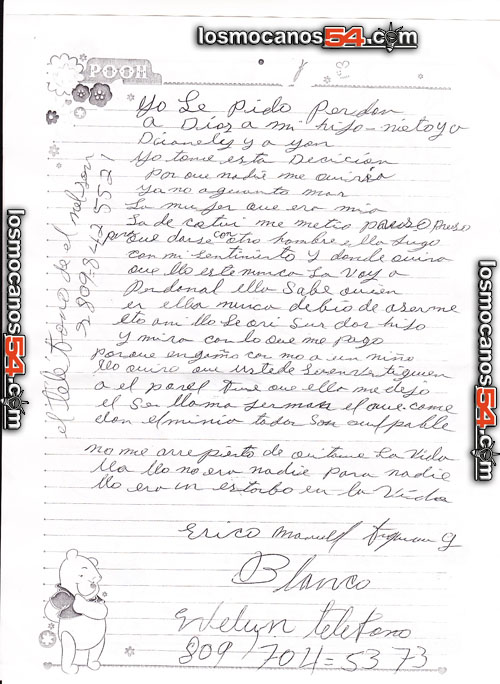 losmocanos54.com
POOH
Yo Le Pido Perdon
a Dios a mi hijo-nieto y a
Dianely y a yan
Yo tome esta Decicion
Porque nadie me quiria
Ya no aguanto mas
La mujer que era mia
La de cotui me metio preso Preso
para que darse con otro hombre ella Jugo
con mi sentimiento y donde quira
que llo este nunca La voy a
Perdonal ella Sabe quien
es ella nunca debio de aserme
eto ami llo le crie sus dos hijo
Y mira con lo que me pago
Porque engaño como a un niño
llo quiro que ustede
a el por el que ella me dejo
el Se llama german el que come
con el todos son culpable
no me arrepiento de quitarme La Vida
llo no era nadie para nadie
llo era un estorbo en la Vida
Erico Manuel
Blanco
Evelyn telefono
809 704=5373
el telefono de el nelson
809-842 5521
losmocanos54.com
losmocanos54.com